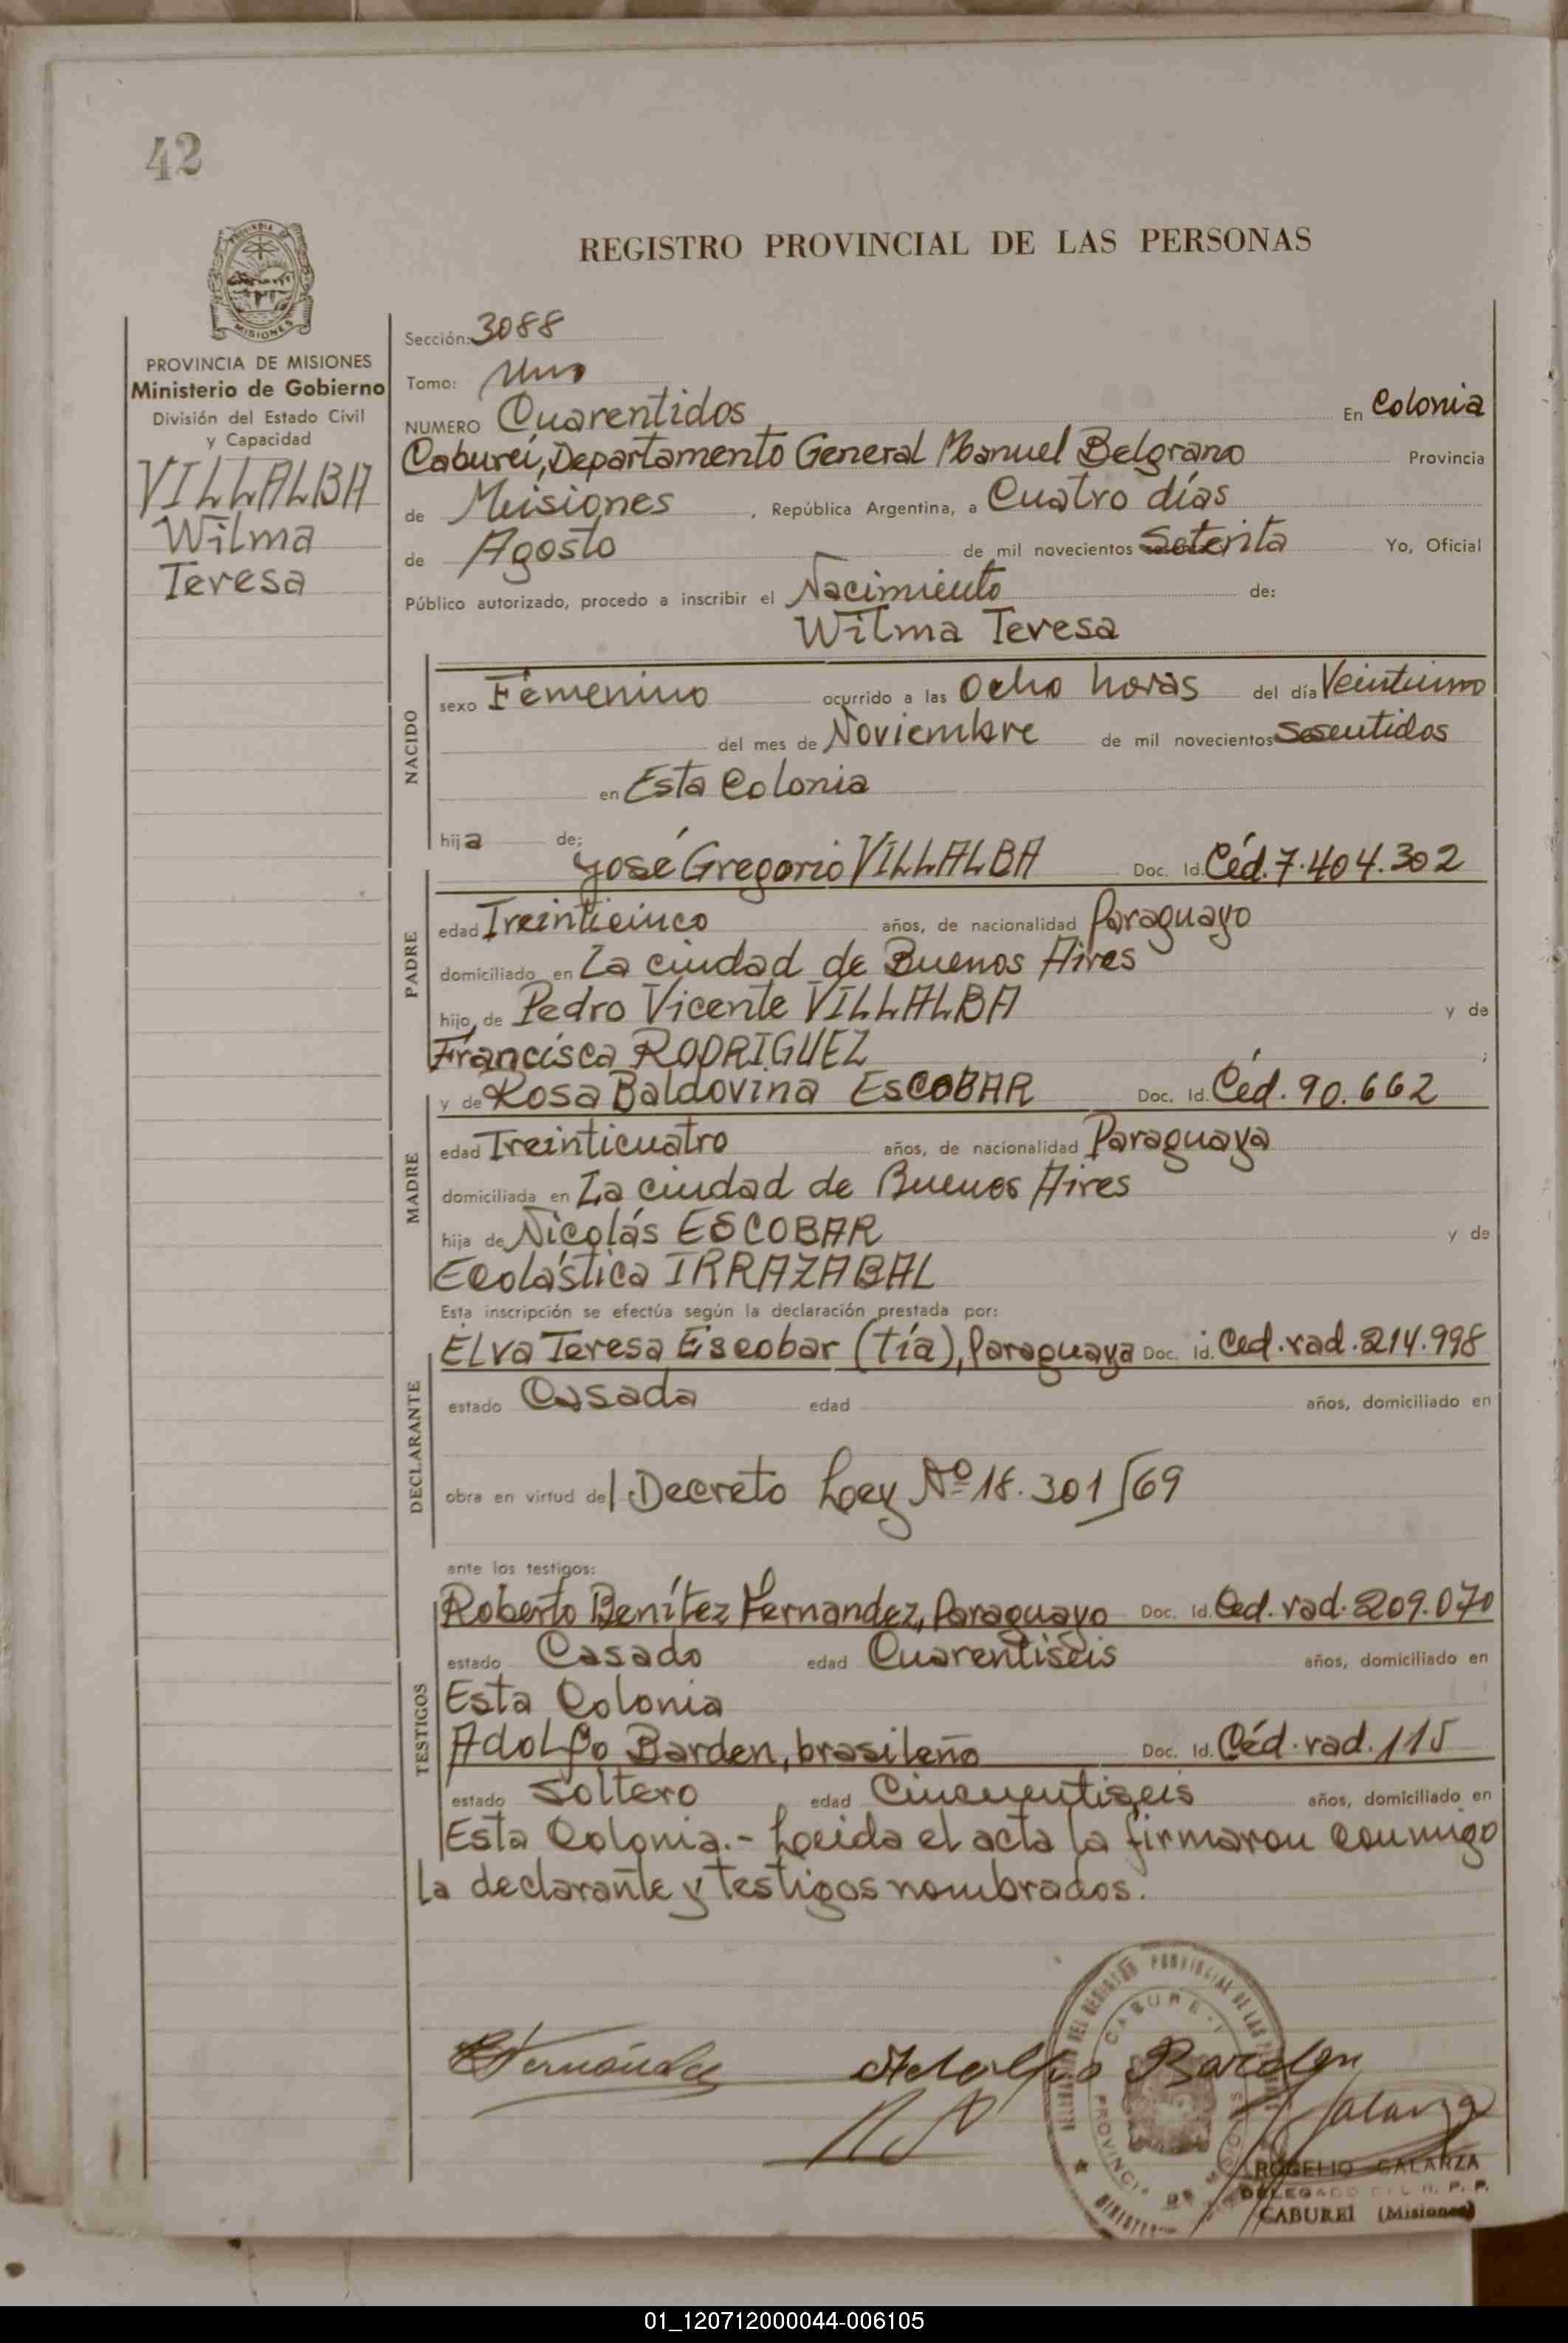 42
REGISTRO PROVINCIAL DE LAS PERSONAS
PROVINCIA
MISIONES
PROVINCIA DE MISIONES
Ministerio de Gobierno
División del Estado Civil
y Capacidad
VILLALBA
Wilma
Teresa
Sección: 3088
Tomo: Uno
NUMERO Cuarentidos En Colonia
Caburei, Departamento General Manuel Belgrano Provincia
de Misiones, República Argentina, a Cuatro días
de Agosto de mil novecientos Setenta Yo, Oficial
Público autorizado, procedo a inscribir el Nacimiento de:
Wilma Teresa
NACIDO
sexo Femenino ocurrido a las Ocho horas del día Veintiuno
del mes de Noviembre de mil novecientos Sesentidos
en Esta Colonia
hija de:
José Gregorio VILLALBA Doc. Id. Céd. 7.404.302
PADRE
edad Treinticinco años, de nacionalidad Paraguayo
domiciliado en La ciudad de Buenos Aires
hijo de Pedro Vicente VILLALBA y de
Francisca RODRIGUEZ ;
y de Rosa Baldovina ESCOBAR Doc. Id. Céd. 90.662
MADRE
edad Treinticuatro años, de nacionalidad Paraguaya
domiciliada en La ciudad de Buenos Aires
hija de Nicolás ESCOBAR y de
Ecolástica IRRAZABAL
Esta inscripción se efectúa según la declaración prestada por:
Elva Teresa Escobar (tía), Paraguaya Doc. id. Ced. rad. 214.998
DECLARANTE
estado Casada edad años, domiciliado en
obra en virtud del Decreto Ley Nº 18.301/69
ante los testigos:
Roberto Benítez Fernandez, Paraguayo Doc. Id. Ced. rad. 209.070
TESTIGOS
estado Casado edad Cuarentiseis años, domiciliado en
Esta Colonia
Adolfo Barden, brasileño Doc. Id. Céd. rad. 115
estado Soltero edad Cincuentiseis años, domiciliado en
Esta Colonia.- Leida el acta la firmaron conmigo
la declarante y testigos nombrados.
Fernández Adolfo Barden
Galarza
PROVINCIAL DE LAS
CABUREI
PROVINCIA DE
ROGELIO GALARZA
DELEGADO DEL R. P. P.
CABUREI (Misiones)
01_120712000044-006105